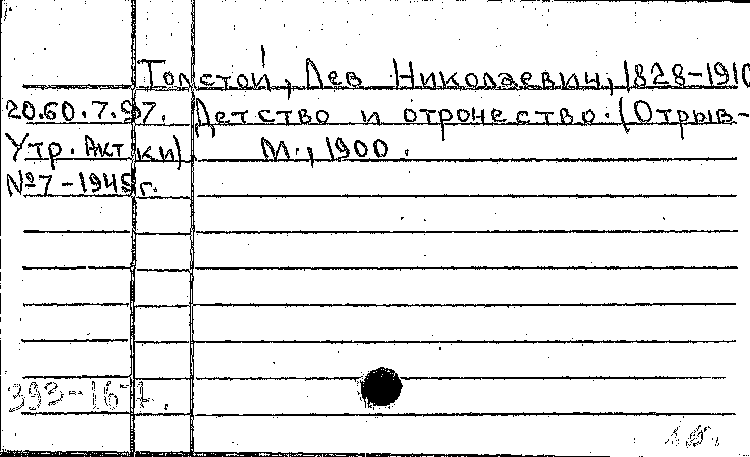 Толстой, Лев Николаевич, 1828-1910
20.60.7.97. Детство и отрочество. (Отрыв-
Утр. Акт ки). М., 1900.
№7-1945г.
393-167.